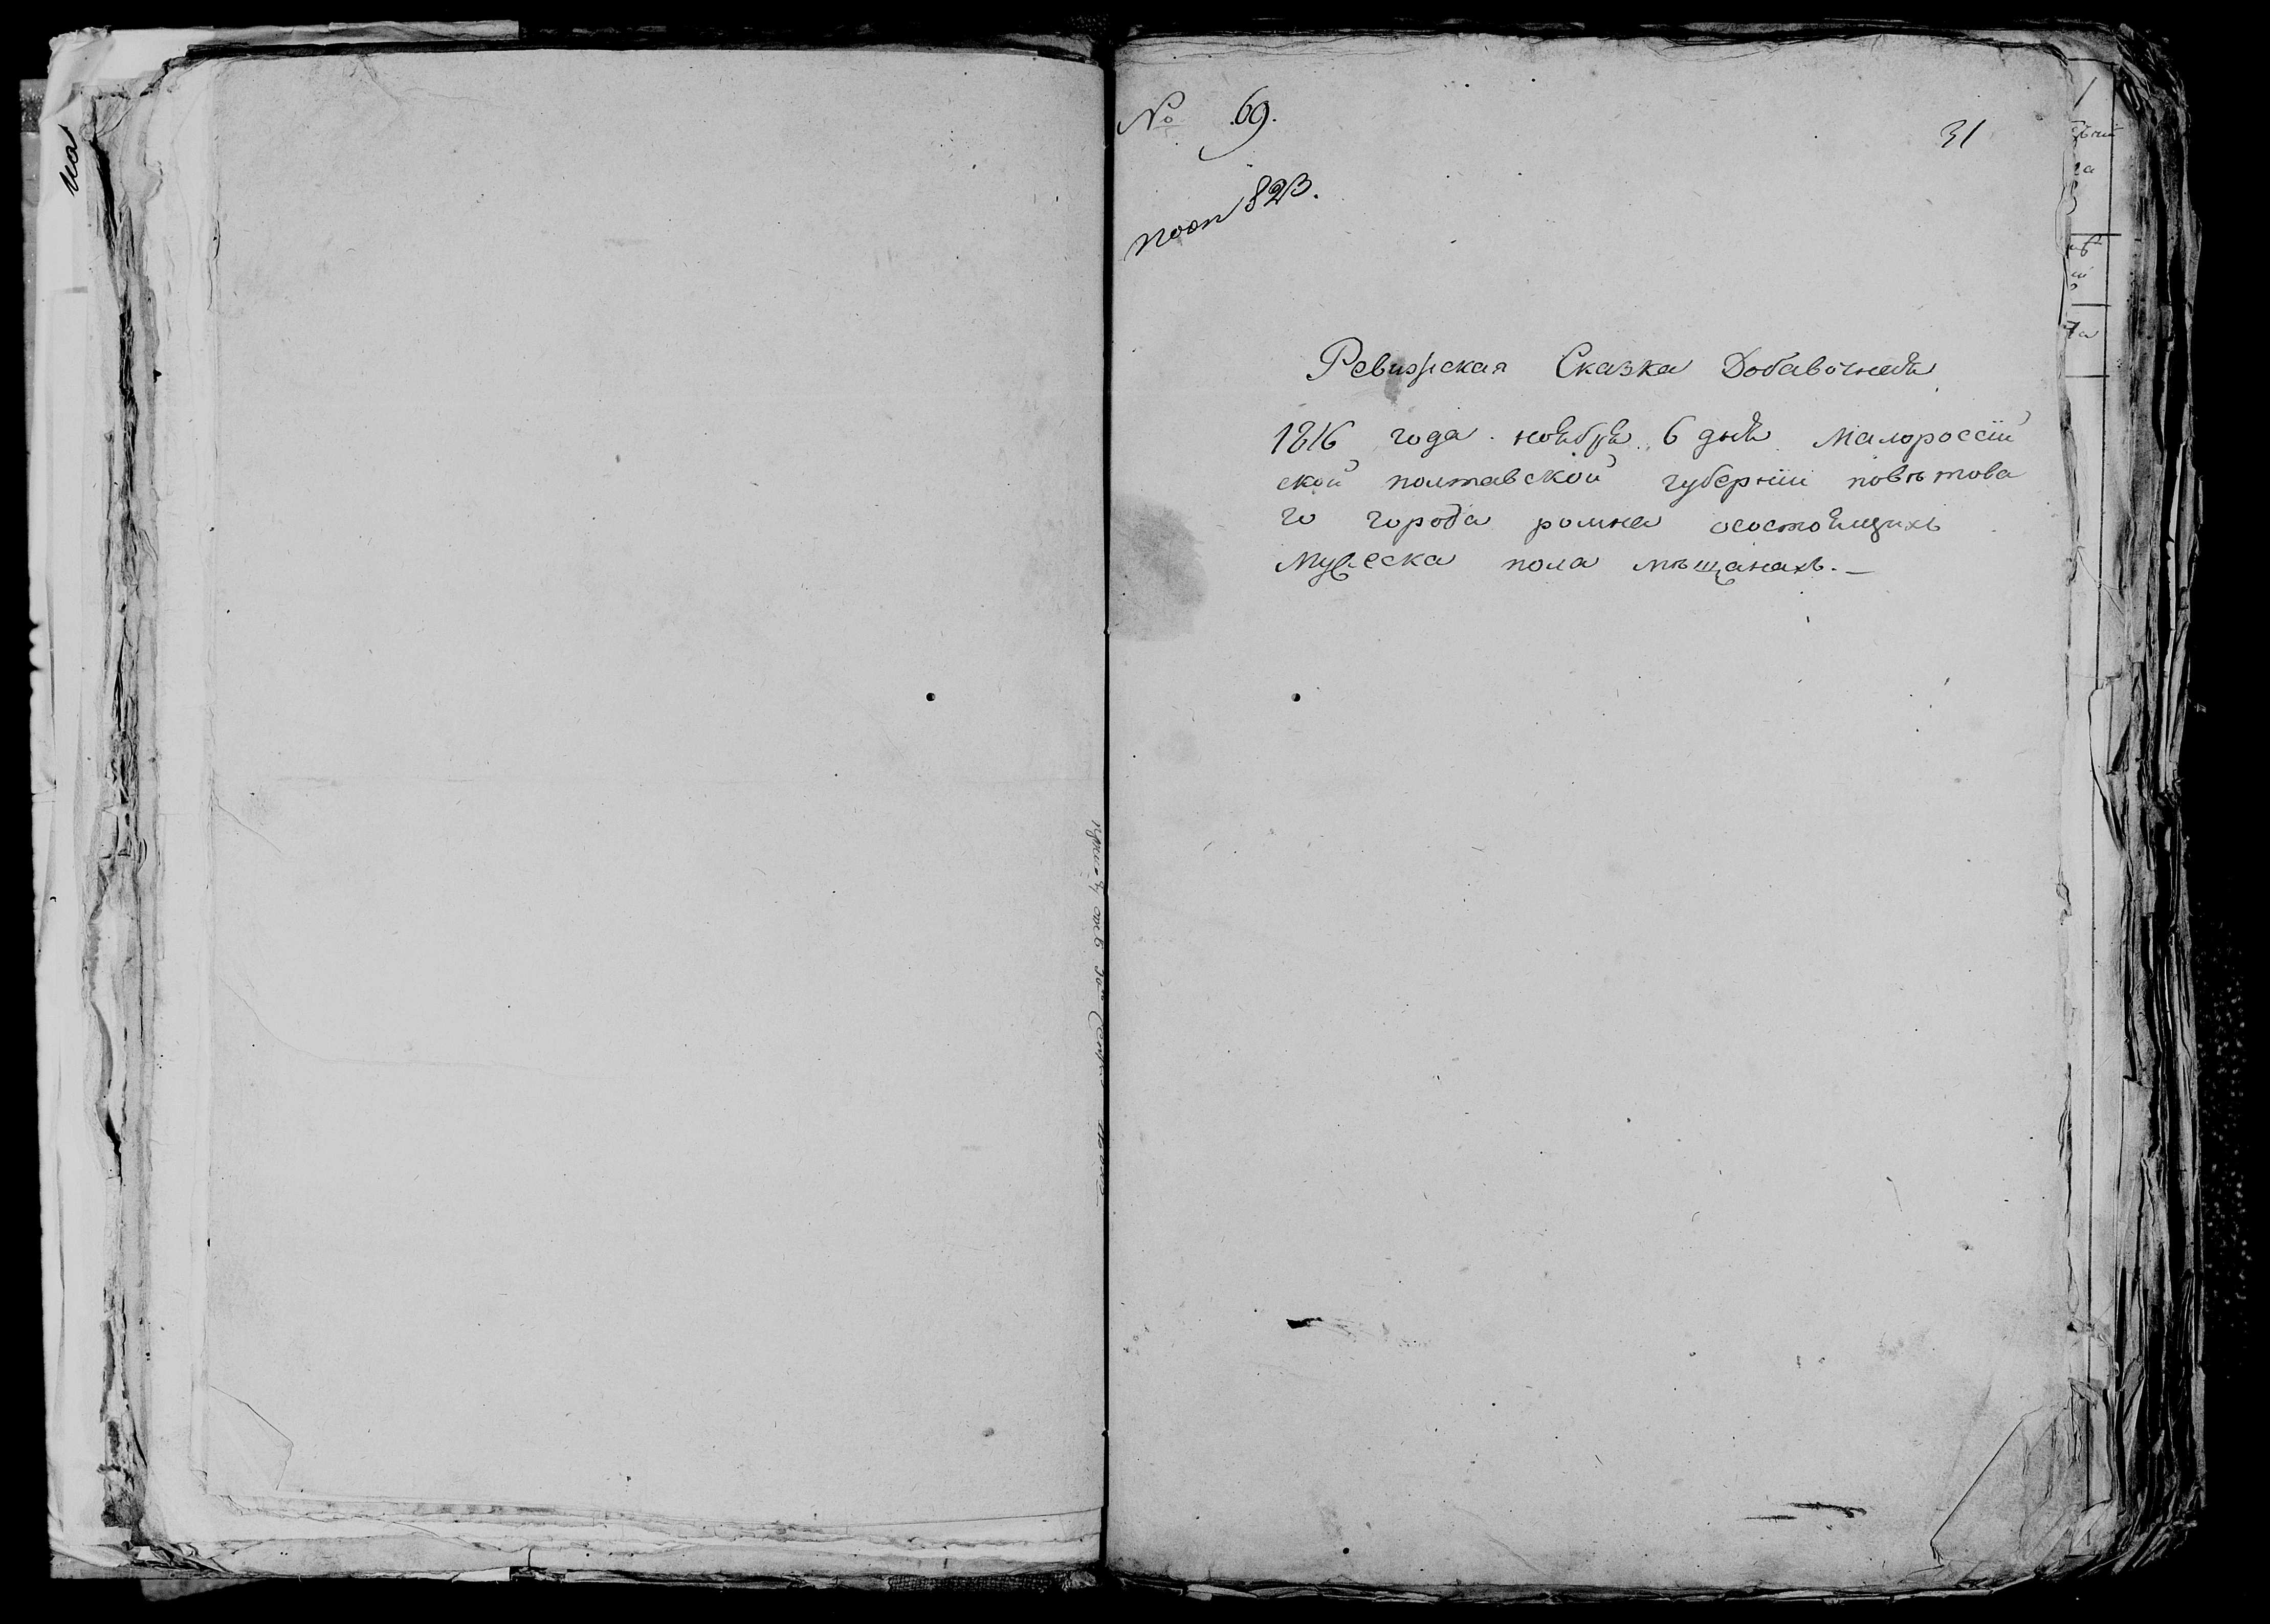 № 69.
31
823.
Ревизская Сказка Добавочная
1816 года ноября 6 дня малороссій
ской полтавской губерніи повѣтова
го города ромна осостоящихъ
мужеска пола мѣщанахъ.—